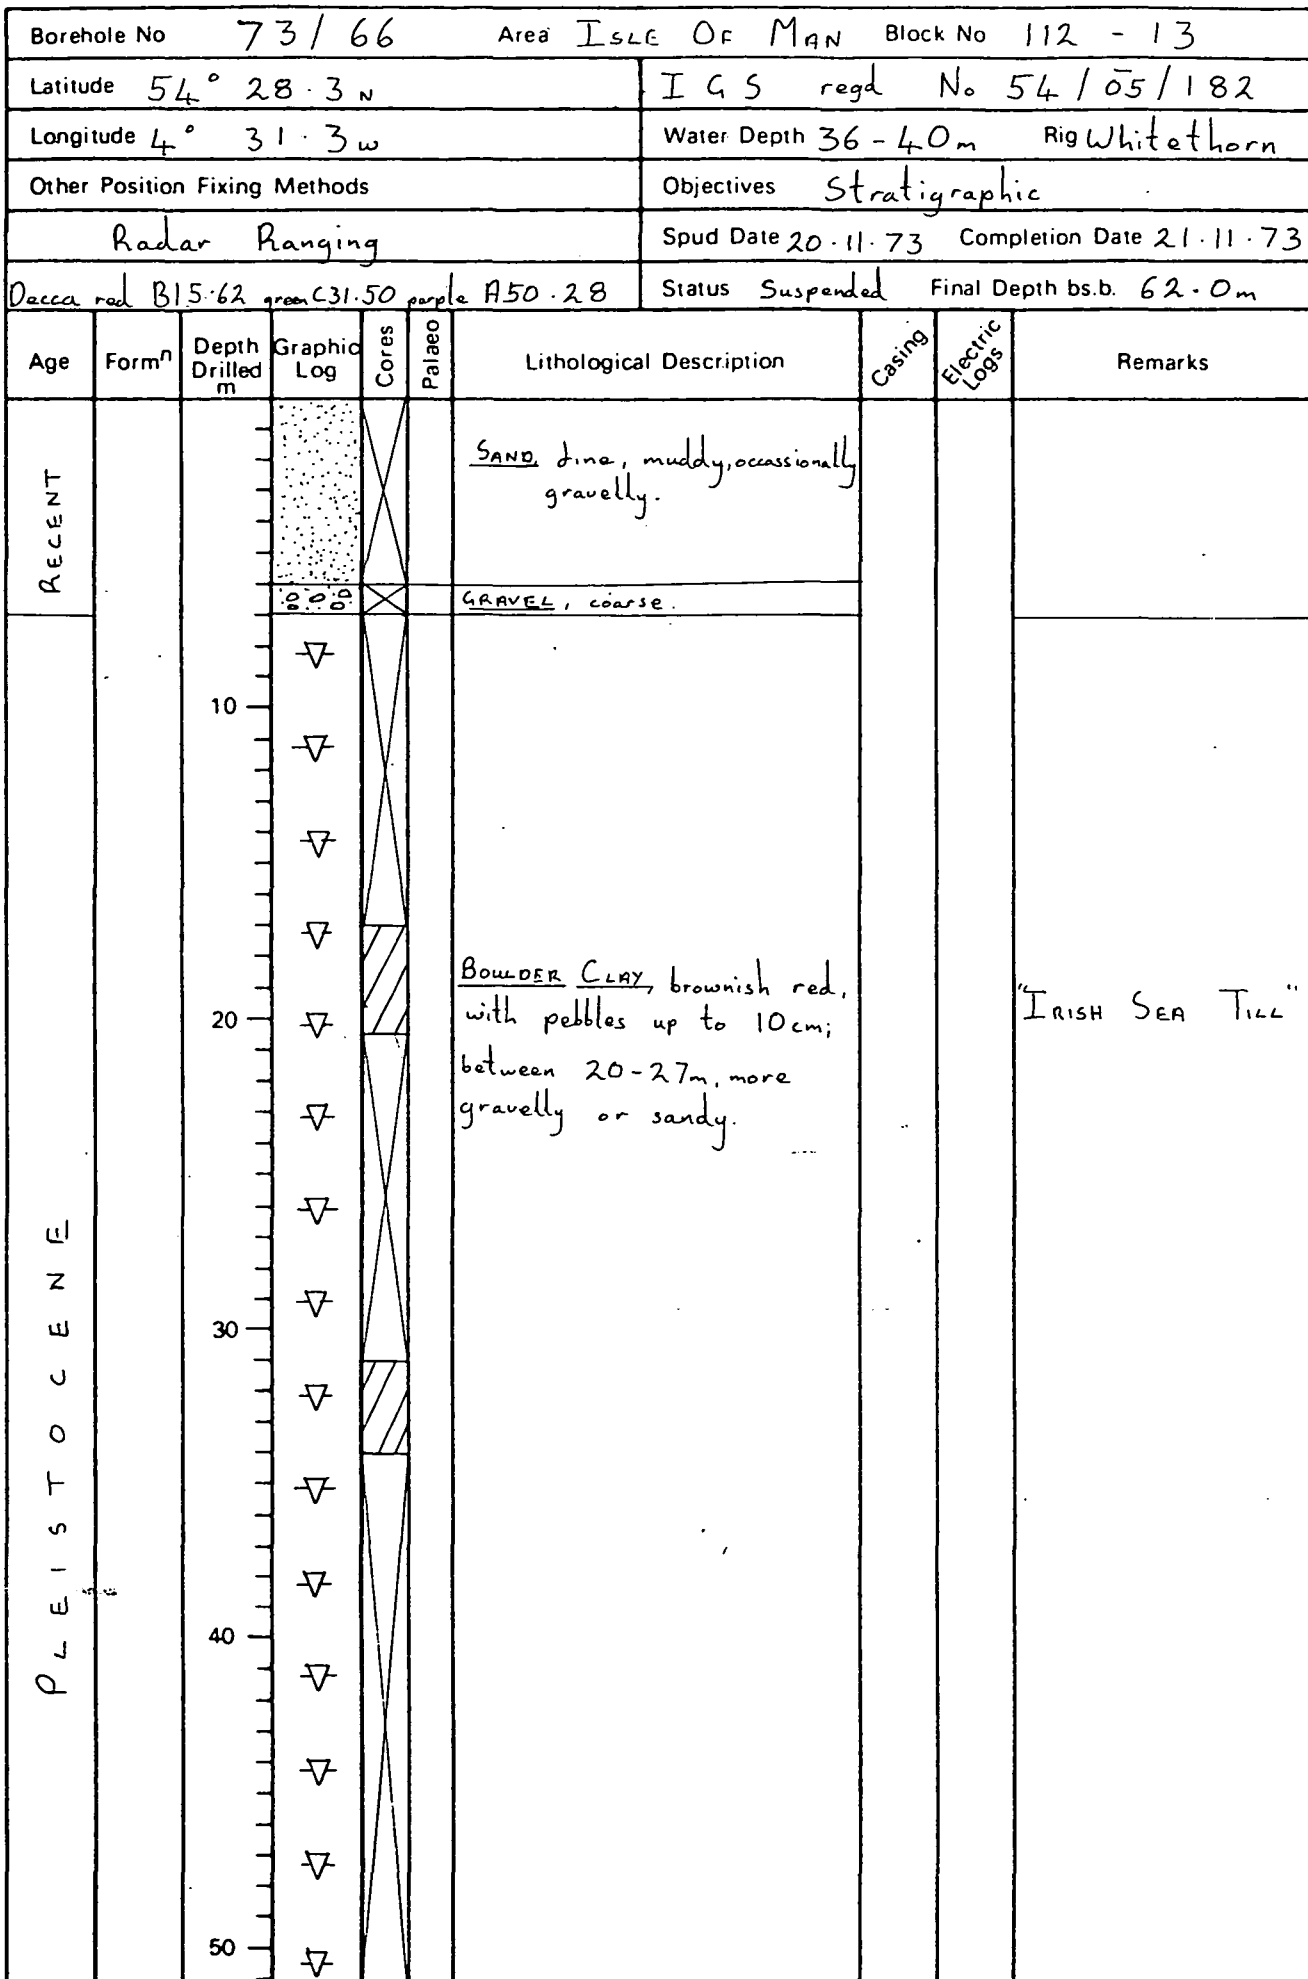 Borehole No 73/66 Area ISLE OF MAN Block No 112 - 13
Latitude 54° 28.3 N I G S regd No 54/05/182
Longitude 4° 31.3 W Water Depth 36-40m Rig Whitethorn
Other Position Fixing Methods Objectives Stratigraphic
Radar Ranging Spud Date 20.11.73 Completion Date 21.11.73
Decca red B15.62 green C31.50 purple A50.28 Status Suspended Final Depth bs.b. 62.0m
Age Formn Depth Drilled m Graphic Log Cores Palaeo Lithological Description Casing Electric Logs Remarks
RECENT
SAND, fine, muddy, occassionally
gravelly.
GRAVEL, coarse.
10
BOULDER CLAY, brownish red,
20 with pebbles up to 10cm; "IRISH SEA TILL"
between 20-27m, more
gravelly or sandy.
PLEISTOCENE
30
40
50